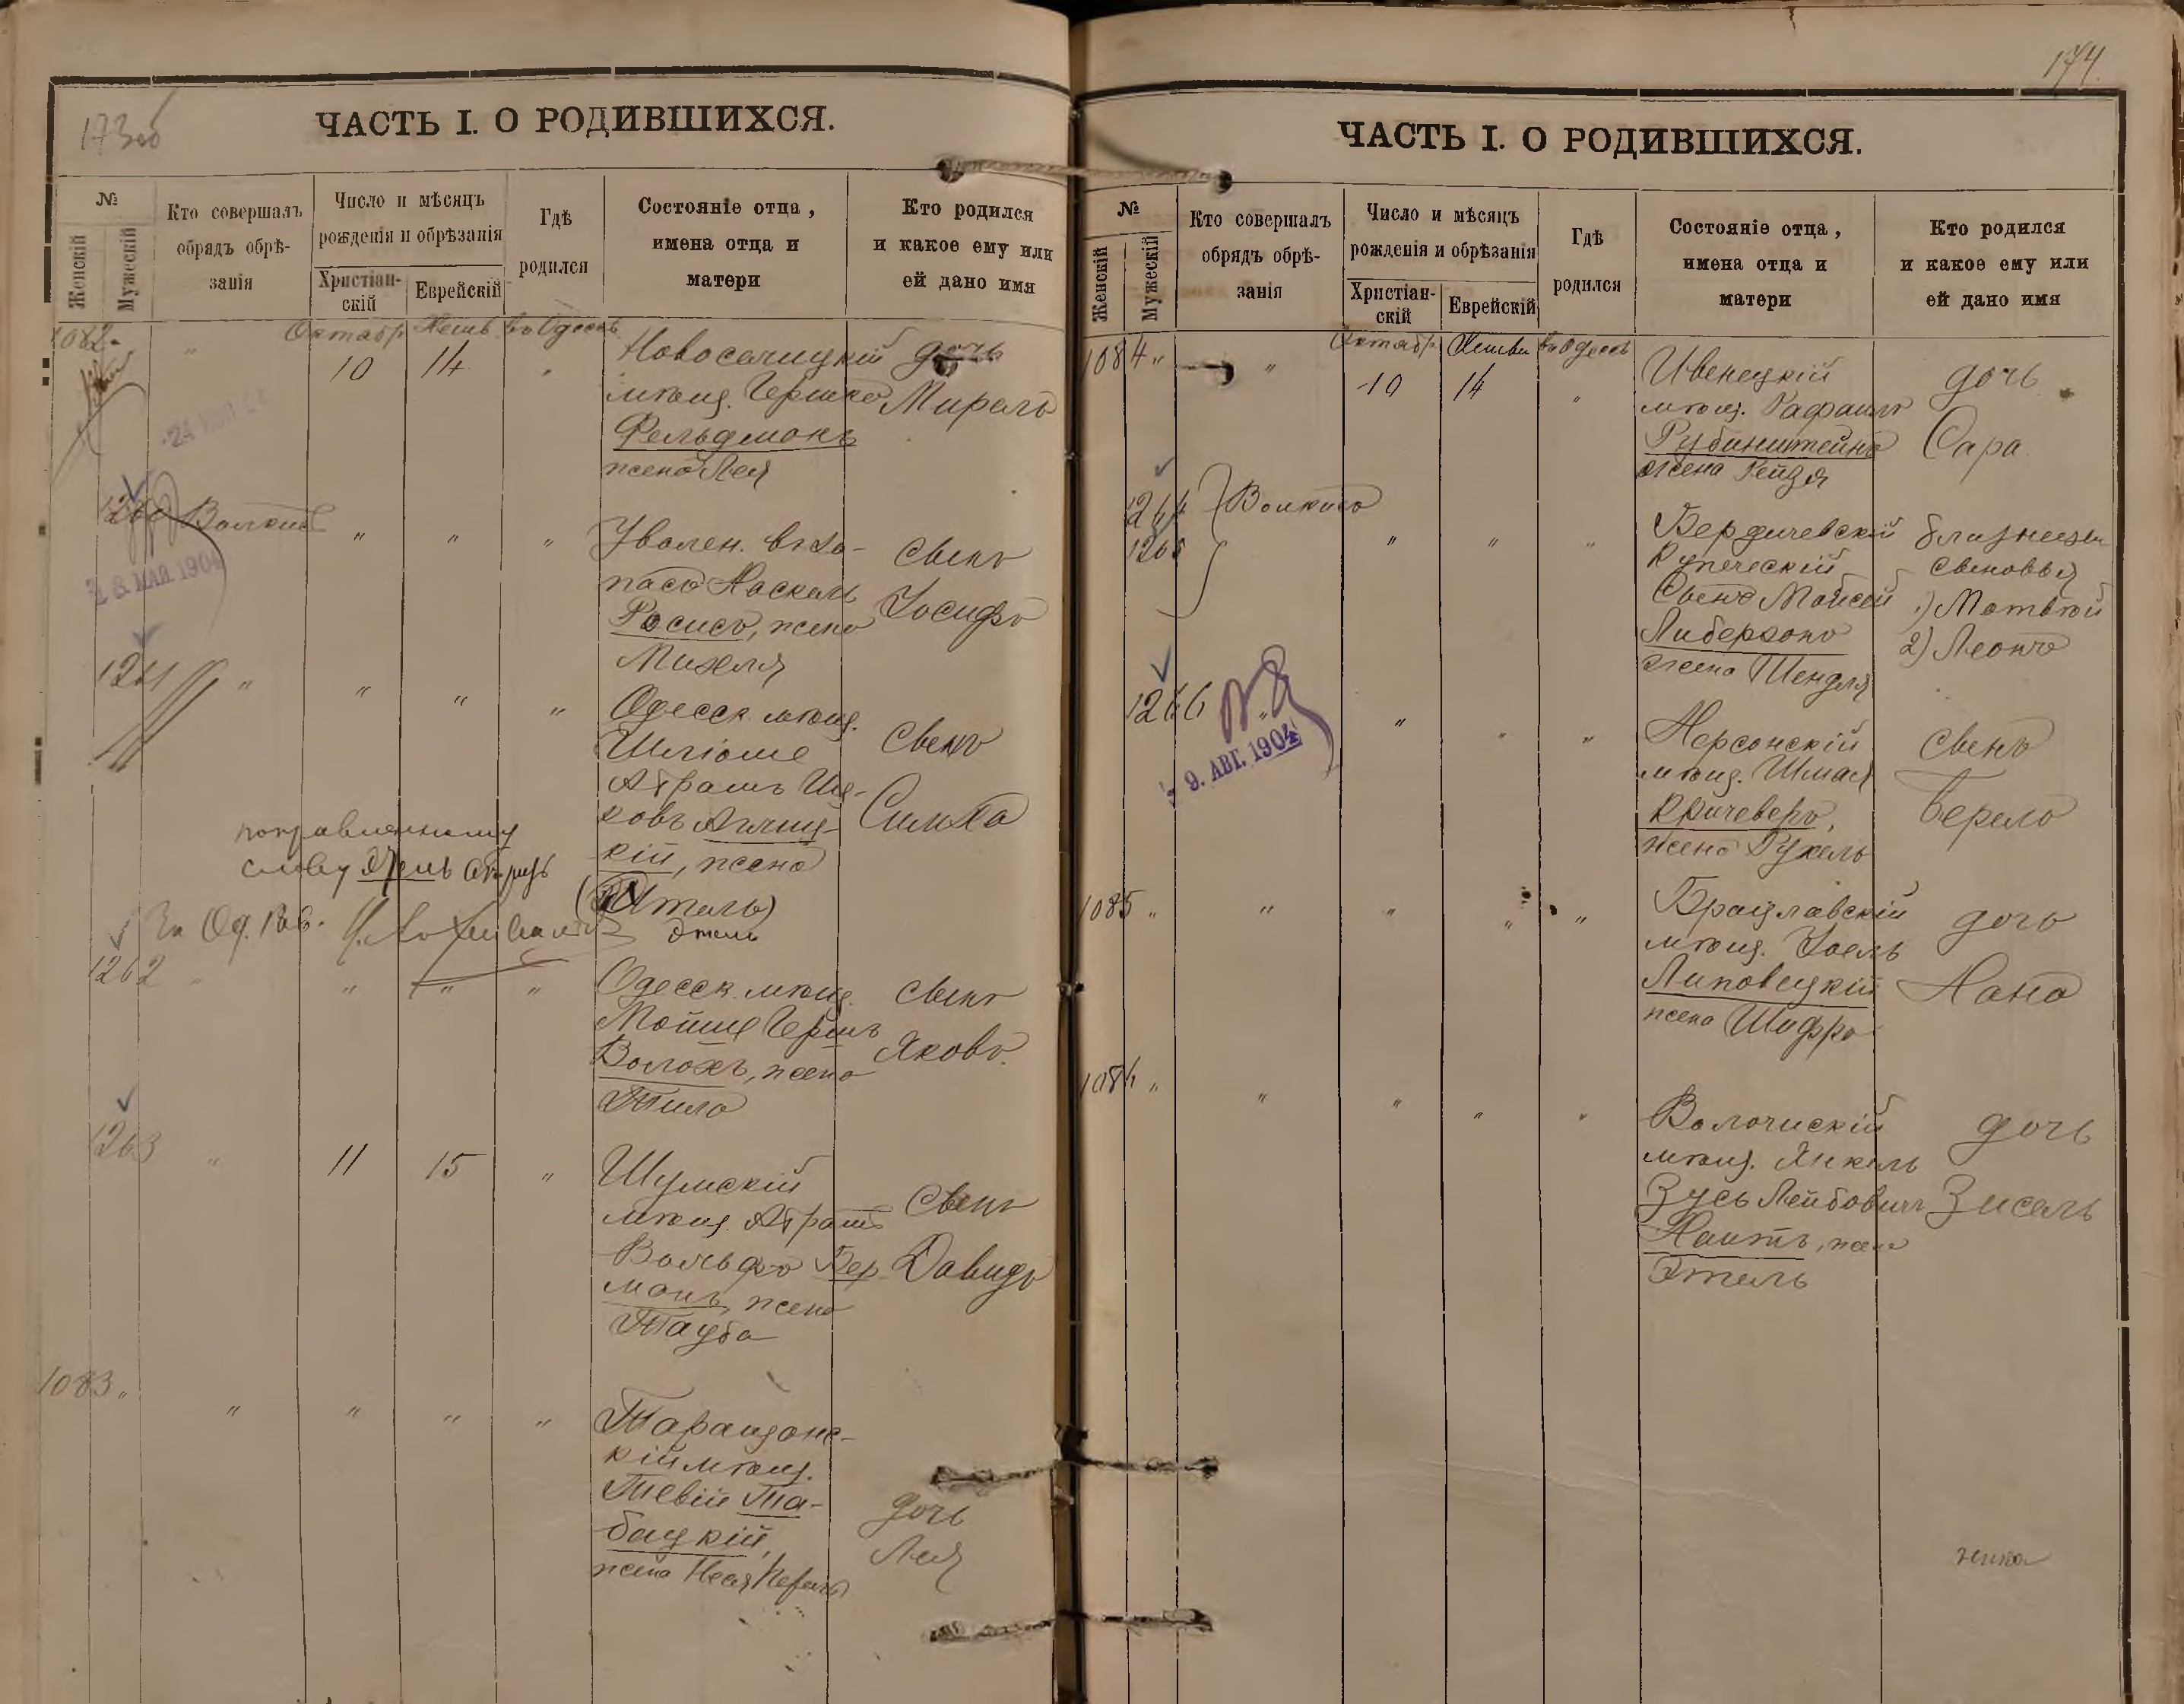 173об
ЧАСТЬ I. О РОДИВШИХСЯ.
№
Женскій
Мужескій
Кто совершалъ
обрядъ обрѣ-
занія
Число и мѣсяцъ
рожденія и обрѣзанія
Христіан-
скій
Еврейскій
Гдѣ
родился
Состояніе отца,
имена отца и
матери
Кто родился
и какое ему или
ей дано имя
1082 „ Октябр Хешв въ Одессѣ
10 14 „
Новоселицкій
мѣщ. Гершко
Фельдманъ
жена Лея
дочь
Мирель
1260 Волкисъ „ „ „
18 МАЯ 1904
Уволен. въ за-
пасъ Хаскель
Росисъ, жена
Михля
сынъ
Іосифъ
1261 „ „ „ „
Одесск. мѣщ.
Шліоме
Абрамъ Иц-
ковъ
кій, жена
(Итель)
Этель
сынъ
Симха
поправленному
слову Этель вѣрить
За Од. Рав.
1262 „ „ „ „
Одесск. мѣщ.
Мойше Гершъ
Волохъ, жена
Тила
сынъ
Яковъ.
1263 „ 11 15 „
Шумскій
мѣщ. Абрамъ
Вольфъ Бер
манъ, жена
Тауба
сынъ
Давидъ
1083 „ „ „ „ „
Таращанс-
кій мѣщ.
Тевій Та-
бацкій,
жена Хая
дочь
Лея
174.
ЧАСТЬ I. О РОДИВШИХСЯ.
№
Женскій
Мужескій
Кто совершалъ
обрядъ обрѣ-
занія
Число и мѣсяцъ
рожденія и обрѣзанія
Христіан-
скій
Еврейскій
Гдѣ
родился
Состояніе отца,
имена отца и
матери
Кто родился
и какое ему или
ей дано имя
1084 „ „ Октябр. Хешви въ Одессѣ
10 14 „
Ивенецкій
мѣщ. Рафаилъ
Рубинштейнъ
жена Рейзя
дочь
Сара
1264
1265
Волкисъ „ „ „
Бердичевскій
купеческій
сынъ Мойсей
Либерзонъ
жена Шендля
близнецы
сыновья
1) Матвѣй
2) Леонъ
1266 „ „ „ „
9. АВГ. 1904
Херсонскій
мѣщ. Шмая
Кричеверъ,
жена Рухель
сынъ
Берелъ
1085 „ „ „ „ „
Брацлавскій
мѣщ. Іоель
Липовецкій
жена Шифра
дочь
Хана
1086 „ „ „ „ „
Волочискій
мѣщ. Янкель
Зусь Лейбовичъ
Хаитъ, жена
Этель
дочь
Зисель